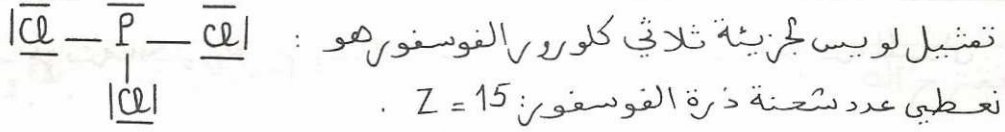 تمثيل لويس لجزيئة ثلاثي كلورور الفوسفور هو : |C̅l̲ — P̅ — C̅l̲|
|
|C̲l|
نعطي عدد شحنة ذرة الفوسفور: Z = 15 .